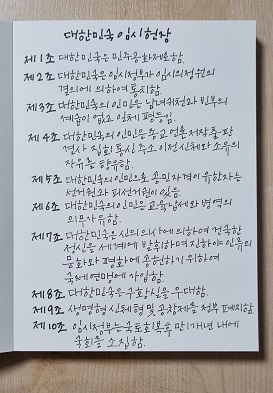 대한민국 임시헌장
제1조 대한민국은 민주공화제로함.
제2조 대한민국은 임시정부가 임시의정원의
결의에 의하여 통치함.
제3조 대한민국의 인민은 남녀귀천와 빈부의
계급이 없고 일체 평등임.
제4조 대한민국의 인민은 종교 언론 저작 출판
결사 집회 통신 주소 이전 신체와 소유의
자유를 향유함.
제5조 대한민국의 인민으로 공민자격이 유한자는
선거권와 피선거권이 있음.
제6조 대한민국의 인민은 교육 납세와 병역의
의무사유함.
제7조 대한민국은 신의 의사에 의하여 건국한
정신을 세계에 발휘하며 진하야 인류의
문화와 평화에 공헌하기 위하여
국제연맹에 가입함.
제8조 대한민국은 구황실을 우대함.
제9조 생명형 신체형 및 공창제를 전부 폐지함.
제10조 임시정부는 국토회복후 만1개년 내에
국회를 소집함.